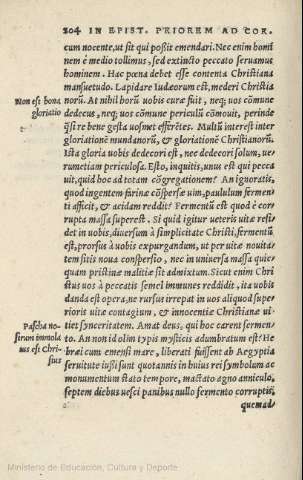 204 IN EPIST. PRIOREM AD COR.
cum nocente, ut sit qui possit emendari. Nec enim homi
nem è medio tollimus, sed extincto peccato seruamus
hominem. Hac pœna debet esse contenta Christiana
mansuetudo. Lapidare Iudæorum est, mederi Christia
norũ. At nihil horũ uobis curæ fuit, neq; uos cõmune
dedecus, neq; uos cõmune periculũ cõmouit, perinde
q̃si re bene gesta uosmet efferetes. Multũ interest inter
gloriationẽ mundanorũ, & gloriationẽ Christianorũ.
Ista gloria uobis dedecori est, nec dedecori solum, ue-
rumetiam periculosa. Esto, inquitis, unus est qui pecca
uit, quid hoc ad totam cõgregationem? An ignoratis,
quod ingentem farinæ cõspersæ uim, paululum fermen
ti afficit, & acidam reddit? Fermentũ est quod è cor-
rupta massa superest. Si quid igitur ueteris uitæ resi-
det in uobis, diuersum à simplicitate Christi, fermentũ
est, prorsus à uobis expurgandum, ut per uitæ nouita-
tem sitis noua conspersio, nec in uniuersa massa quic-
quam pristinæ malitiæ sit admixtum. Sicut enim Chri
stus uos à peccatis semel immunes reddidit, ita uobis
danda est opera, ne rursus irrepat in uos aliquod supe
rioris uitæ contagium, & innocentiæ Christianæ ui-
tiet synceritatem. Amat deus, qui hoc caret fermen-
to. An non id olim typis mysticis adumbratum est? He
bræi cum emensi mare, liberati fuissent ab Aegyptia
seruitute iussi sunt quotannis in huius rei symbolum ac
monumentum stato tempore, mactato agno anniculo,
septem diebus uesci panibus nullo fermento corruptis,
quemad-
Non est bona
gloriatio
Pascha no-
strum immola
tus est Chri-
stus
Ministerio de Educación, Cultura y Deporte